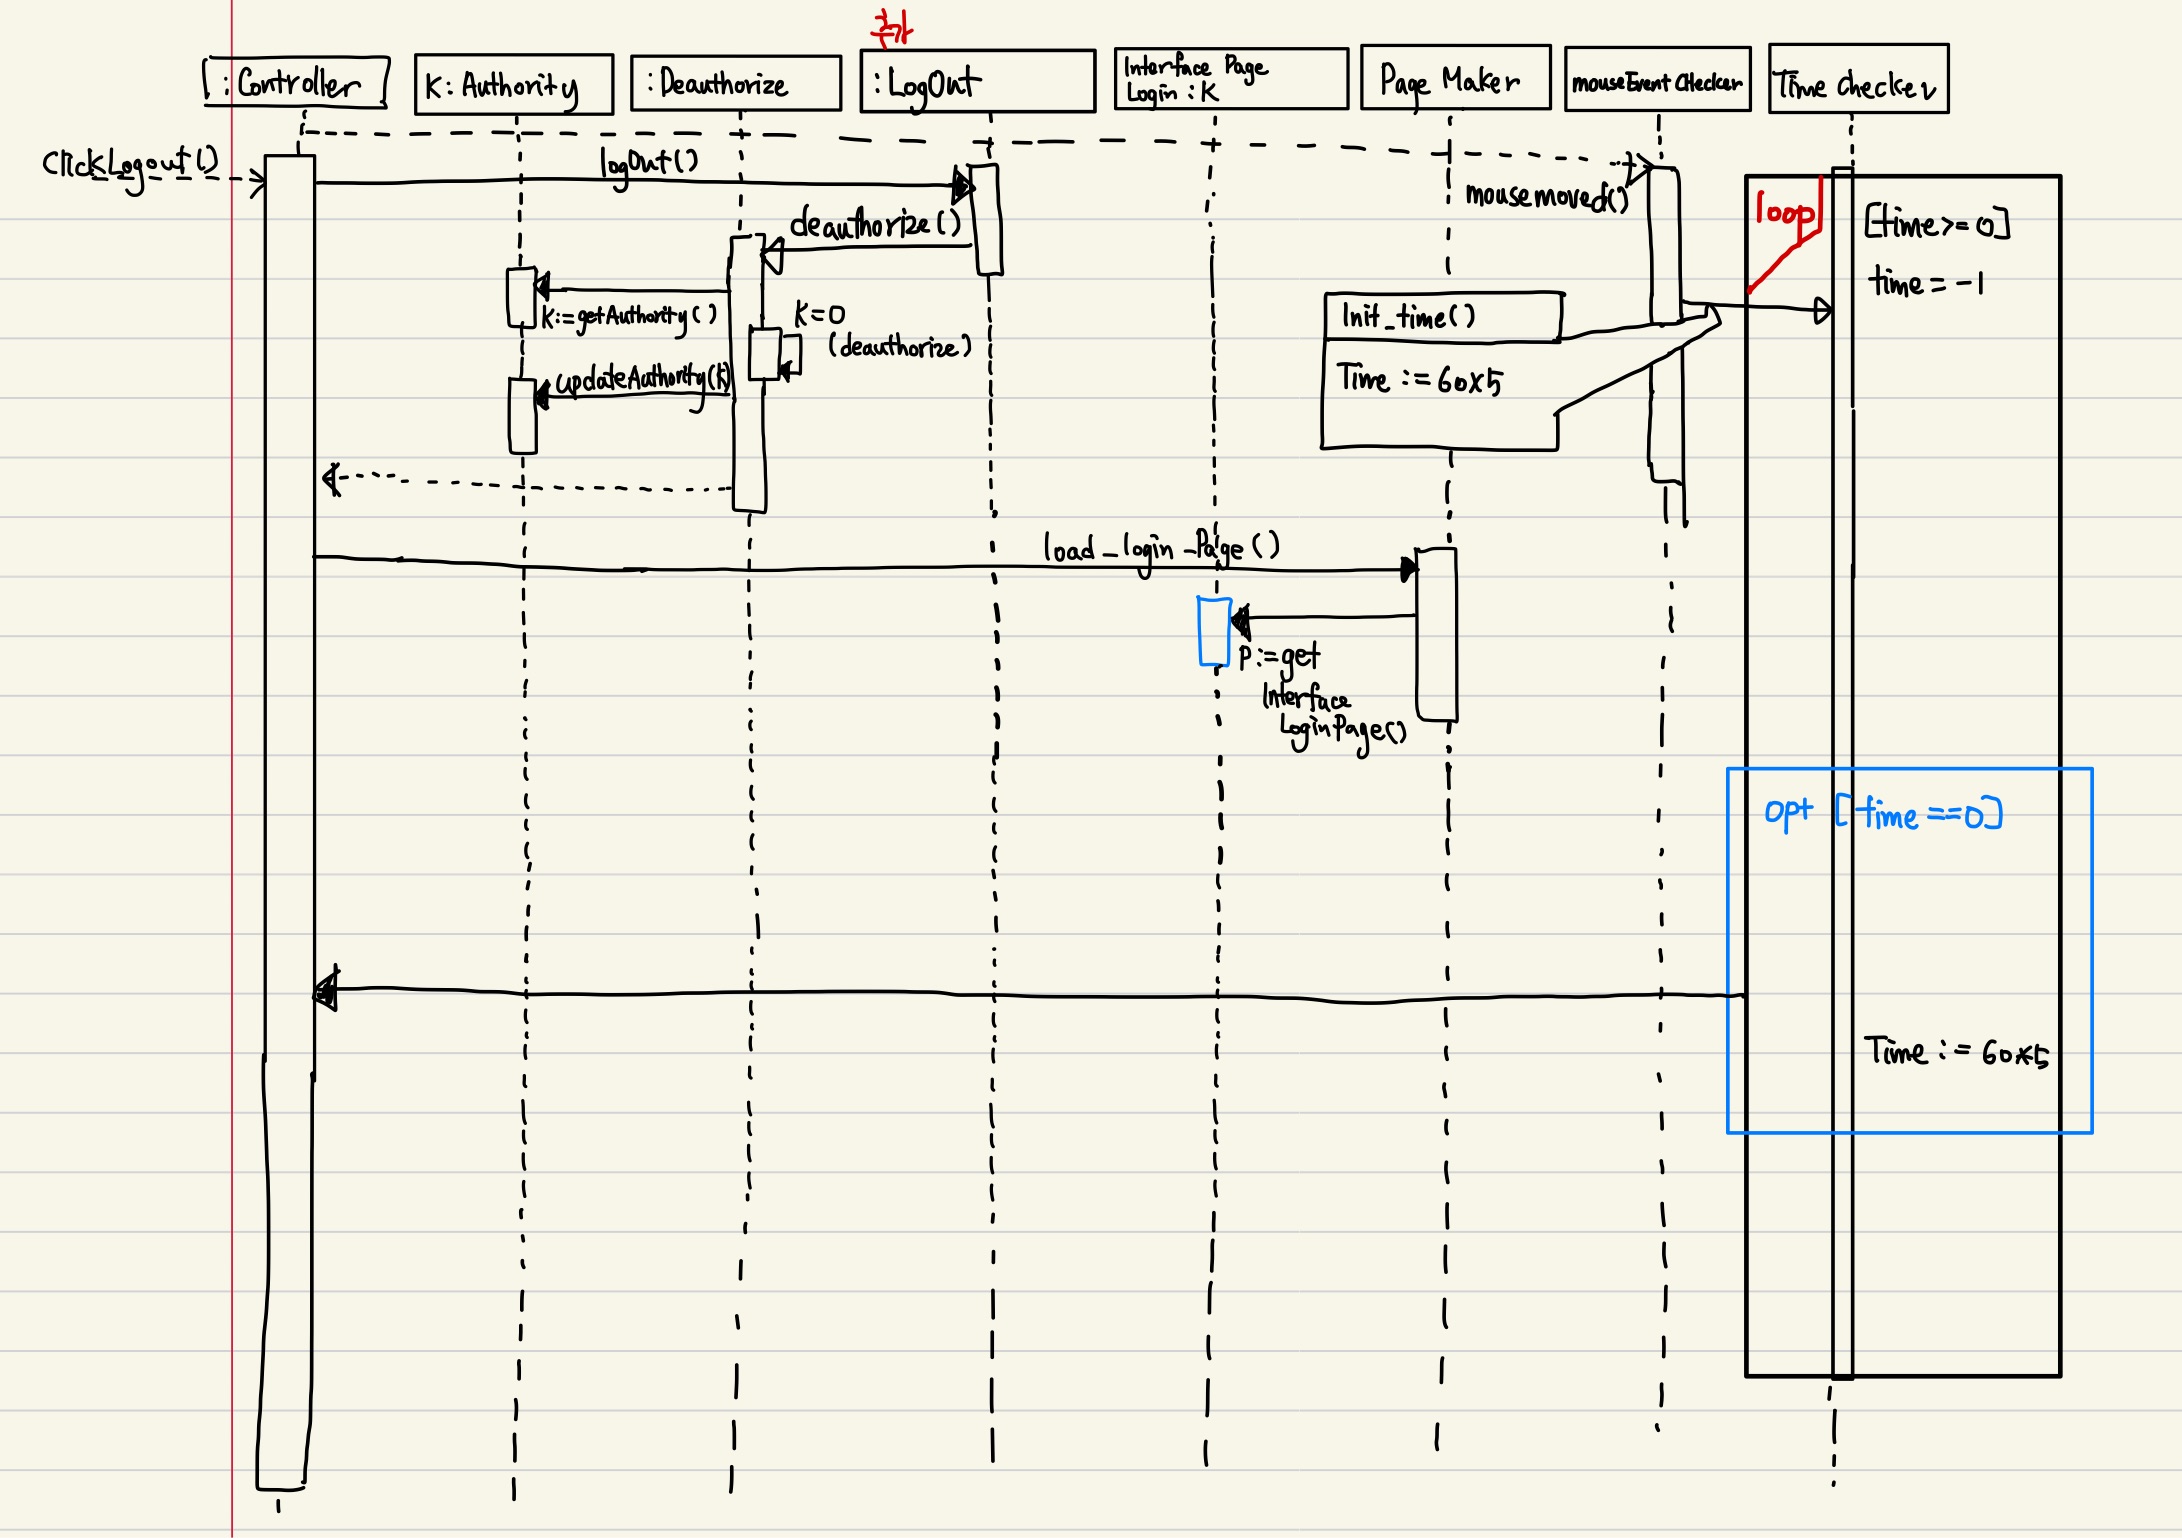 추가
: Controller
K: Authority
: Deauthorize
: LogOut
Interface Page
Login : K
Page Maker
mouseEvent Checker
Time checker
ClickLogout()
logOut()
mouse moved()
loop
[time>= 0]
time = -1
deauthorize()
K:= getAuthority()
K=0
(deauthorize)
updateAuthority(K)
Init_time()
Time := 60x5
load_login_Page()
P:= get
Interface
LoginPage()
opt [time ==0]
Time := 60x5